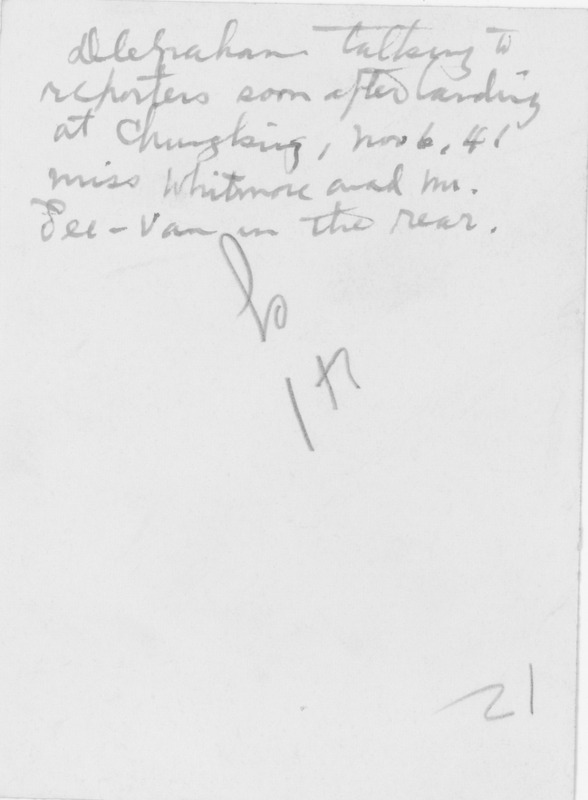 DCGraham talking to
reporters soon after landing
at Chungking, Nov 6, 41
miss Whitmore and Mr.
Tee-Van in the rear.
21